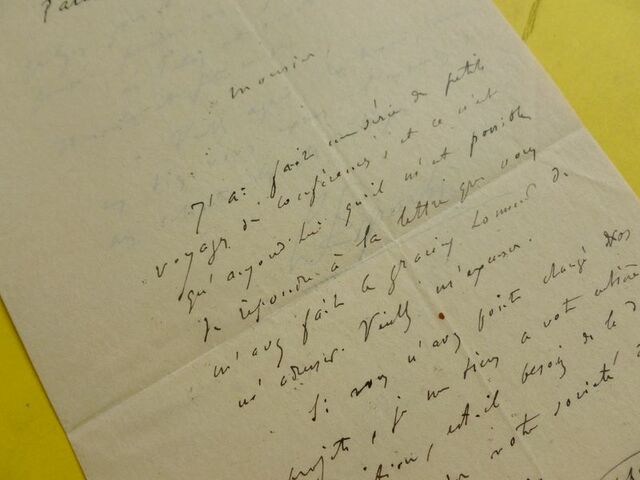 Monsieur,
J'ai fait une série de petits
voyages de conférences, et ce n'est
qu'aujourd'hui qu'il m'est possible
de répondre à la lettre que vous
m'avez fait le gracieux honneur de
m'adresser. Veuillez m'excuser.
Si vous n'avez point changé vos
projets, je me tiens à votre
est-il besoin de le
votre société